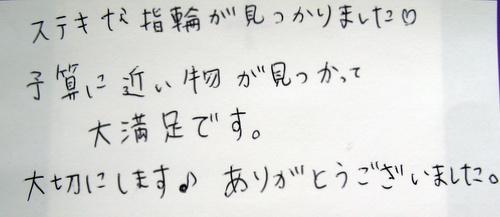 ステキな指輪が見つかりました♡
予算に近い物が見つかって
大満足です。
大切にします♪ ありがとうございました。